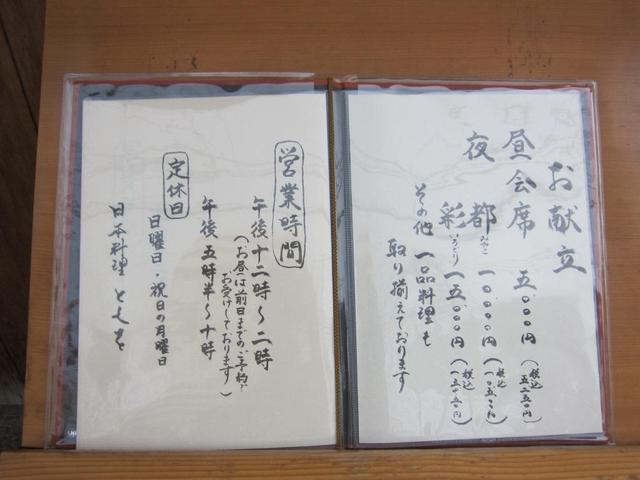 お献立
昼会席 五、〇〇〇円(税込 五二五〇円)
夜 都 みやこ 一〇、〇〇〇円(税込 一〇五〇〇円)
彩 いろどり 一五、〇〇〇円(税込
その他 一品料理も
取り揃えております
営業時間
午後十二時〜二時
(お昼は前日までのご予約で
お受けしております)
午後五時半〜十時
定休日
日曜日・祝日の月曜日
日本料理